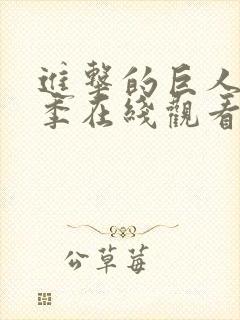 進擊的巨人
季在綫觀看
公草莓